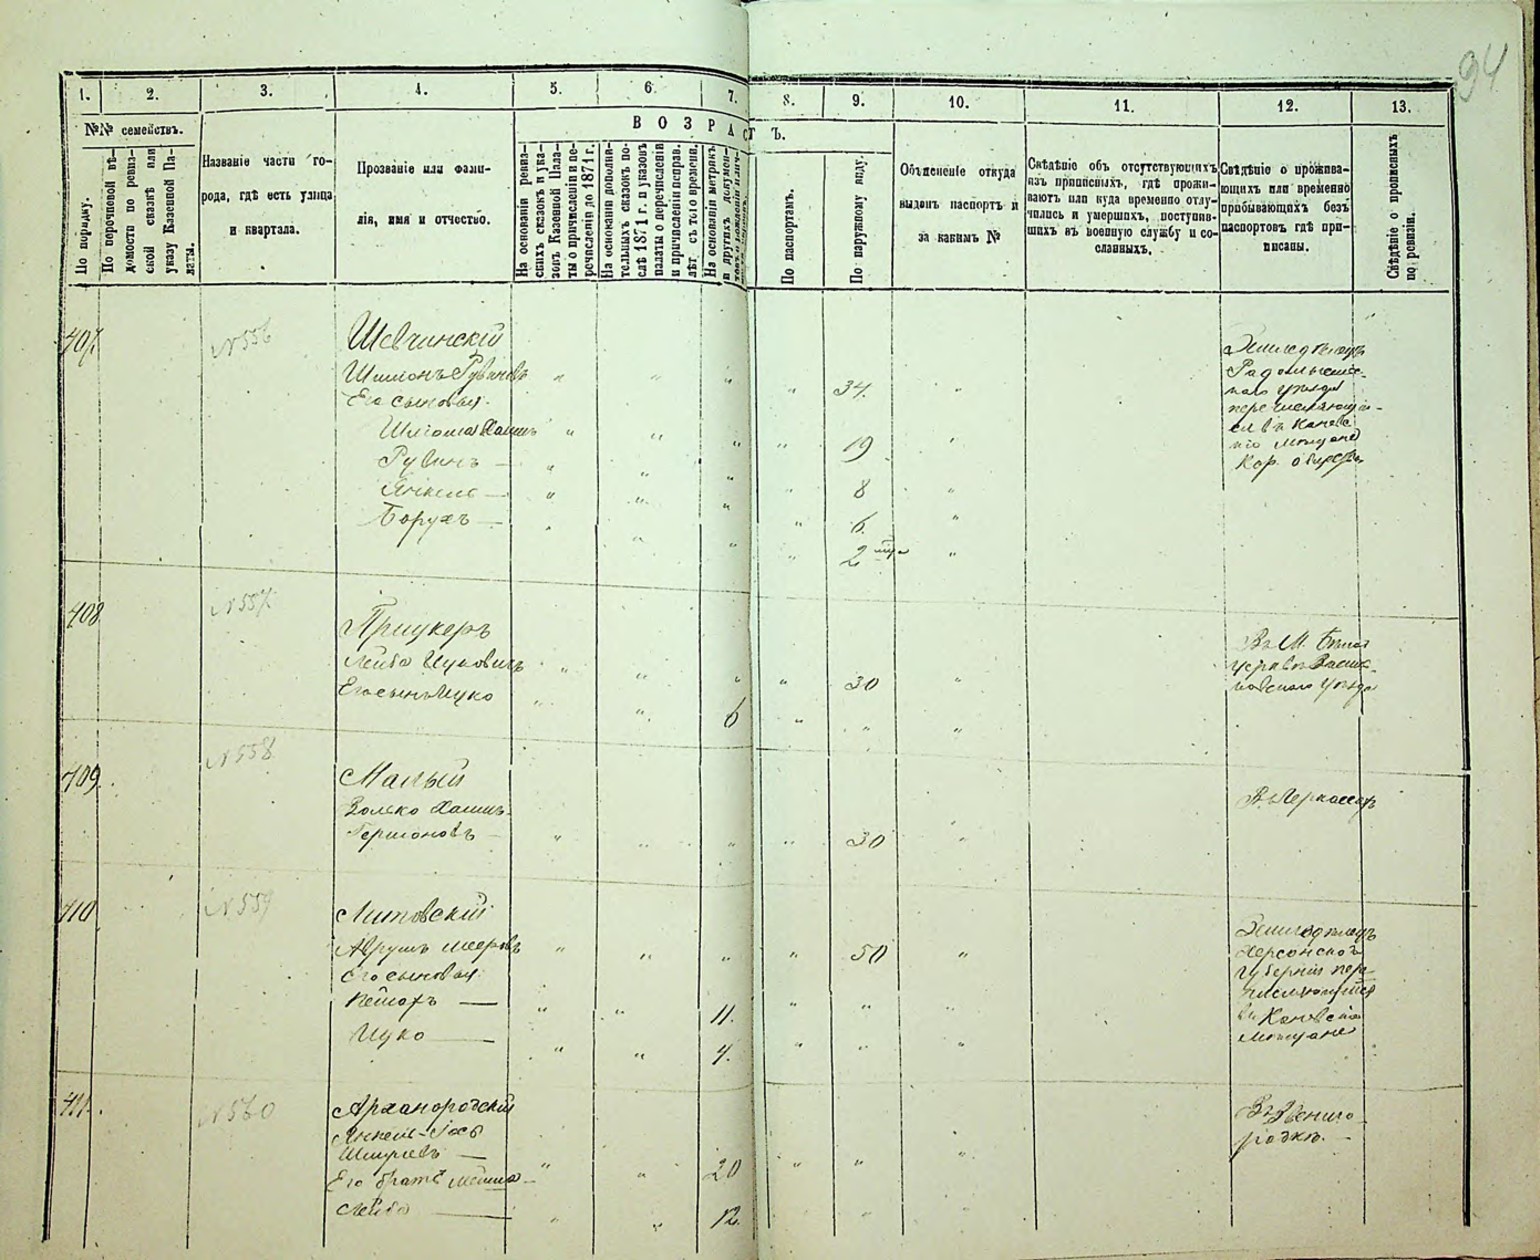 94
1. 2. 3. 4. 5. 6. 7. 8. 9. 10. 11. 12. 13.
№№ семействъ.
По порядку.
По перечневой вѣ-
домости по ревиз-
ской сказкѣ или
указу Казенной Па-
латы.
Названіе части го-
рода, гдѣ есть улица
и квартала.
Прозваніе или фами-
лія, имя и отчество.
ВОЗРАСТЪ.
На основаніи ревиз-
скихъ сказокъ и ука-
зовъ Казенной Пала-
ты о причисленіи и пе-
речисленіи до 1871 г.
На основаніи дополни-
тельныхъ сказокъ по-
слѣ 1871 г. и указовъ
палаты о перечисленіи
и причисленіи исправ.
лѣт. съ того времени.
На основаніи метрикъ
и другихъ докумен-
товъ о рожденіи
По паспортамъ.
По наружному виду.
Объясненіе откуда
выданъ паспортъ и
за какимъ №
Свѣдѣніе объ отсутствующихъ
изъ приписныхъ, гдѣ прожи-
ваютъ или куда временно отлу-
чились и умершихъ, поступив-
шихъ въ военную службу и со-
сланныхъ.
Свѣдѣніе о прожива-
ющихъ или временно
прибывающихъ безъ
паспортовъ гдѣ при-
писаны.
Свѣдѣніе о прописныхъ
по ревизіи.
407. №556
Шевчинскій
Шимонъ Рувиновъ " " " " 34. "
Его сыновья
Шлioма Хаимъ " " " " 19 "
Рувинъ — " " " " 8 "
Янкель — " " " " 6. "
Борухъ — " " " " 2 "
Земледѣлецъ
Радомысль-
скаго уѣзда
перечисляющій-
ся въ Канев-
скіе мѣщане
408 №557
Прицкеръ
Лейба Ицковичъ " " " " 30 "
Его сынъ Ицко " " 6 " " "
Въ М. Бѣлой
церкви Василь-
ковскаго уѣзда
409. №558
Малый
Волько Хаимъ-
Гершоновъ — " " " " 30 "
Въ Черкассахъ
410 №559
Литовскій
Аврумъ Мееровъ " " " " 50 "
Его сыновья
Пейсахъ — " " 11. " " "
Ицко — " " 4. " " "
Земледѣлецъ
Херсонской
губерніи пере-
числяющійся
въ Каневскіе
мѣщане
411. №560
Архангородскій
Янкель-Іосъ
Шмулевъ — " " 20 " " "
Его братъ Мейша-
Лейба — " " 12. "
Въ Звениго-
родкѣ. —